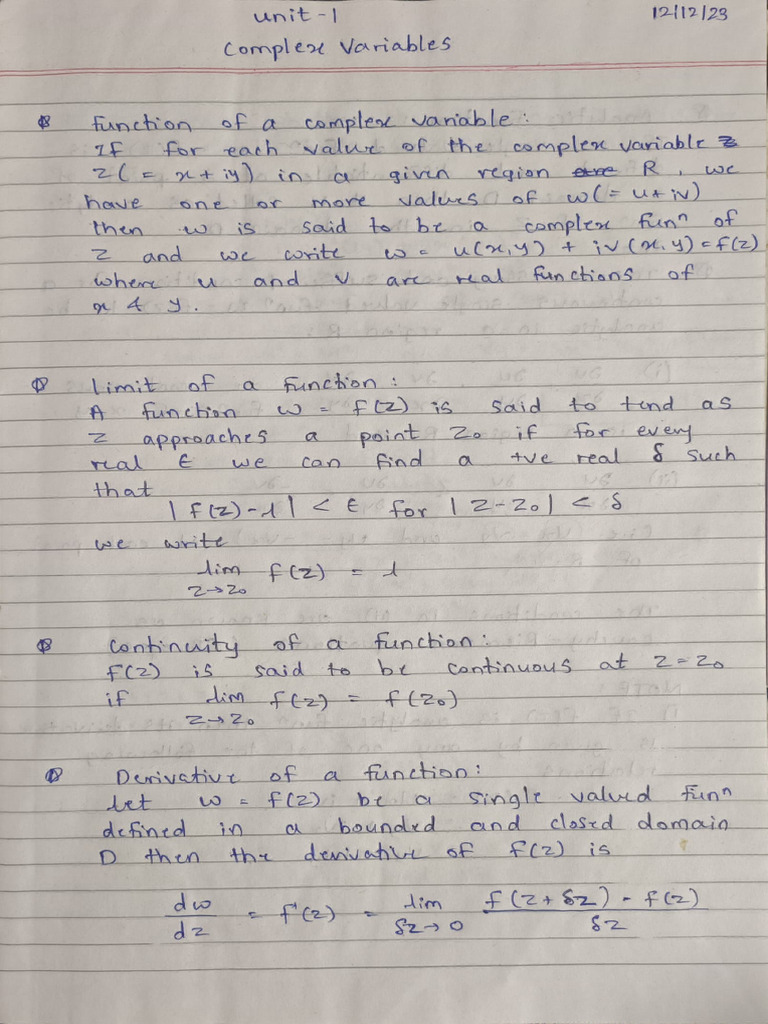 unit-1
12/12/23
Complex Variables
Function of a complex variable:
If for each value of the complex variable z
z(= x + iy) in a given region are R, we
have one or more values of w(= u + iv)
then w is said to be a complex funⁿ of
z and we write w = u(x,y) + iv(x,y) = f(z)
where u and v are real functions of
x & y.
Limit of a function:
A function w = f(z) is said to tend as
z approaches a point z₀ if for every
real ϵ we can find a +ve real δ such
that
|f(z)-l| < ϵ for |z-z₀| < δ
we write
lim f(z) = l
z→z₀
Continuity of a function:
f(z) is said to be continuous at z=z₀
if lim f(z) = f(z₀)
z→z₀
Derivative of a function:
Let w = f(z) be a single valued funⁿ
defined in a bounded and closed domain
D then the derivative of f(z) is
dw/dz = f'(z) = lim δz→0 f(z+δz) - f(z)/δz